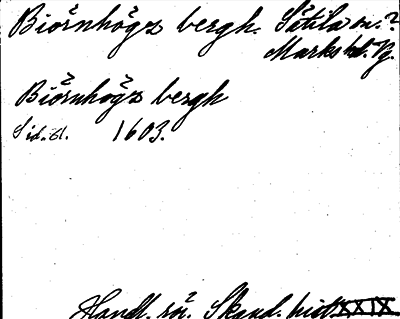 Biörnhögz bergh. Sätila sn.?
Marks hd. Vg.
Biörnhögz bergh
1603.
Handl. rör. Skand. hist. XXIX